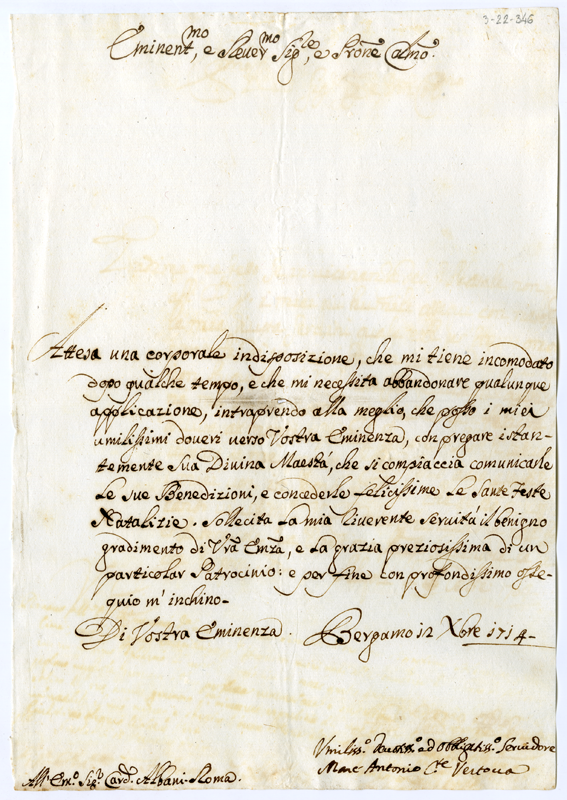 3-22-346
Eminent.mo, e Reuer.mo Sig.re, e Prõne Colmo.
Attesa una corporale indisposizione, che mi tiene incomodato
dopo qualche tempo, e che mi necessita abbandonare qualunque
applicazione, intraprendo alla meglio, che posso i miei
umilissimi doueri uerso Vostra Eminenza, con pregare istan-
temente Sua Diuina Maestá, che si compiaccia comunicarle
le sue Benedizioni, e concederle felicissime le Sante feste
Natalizie. Sollecita la mia riuerente seruitú il benigno
gradimento di Vrã Emza, e la grazia preziosissima di un
particolar Patrocinio: e per fine con profondissimo osse-
quio m'inchino-
Di Vostra Eminenza. Bergamo 12 Xbre 1714-
Vmiliss.o Deuotiss.o ed Obligatiss.o Seruidore
Marc Antonio C.te Vertoua
All'Em.o Sig.r Card. Albani. Roma.